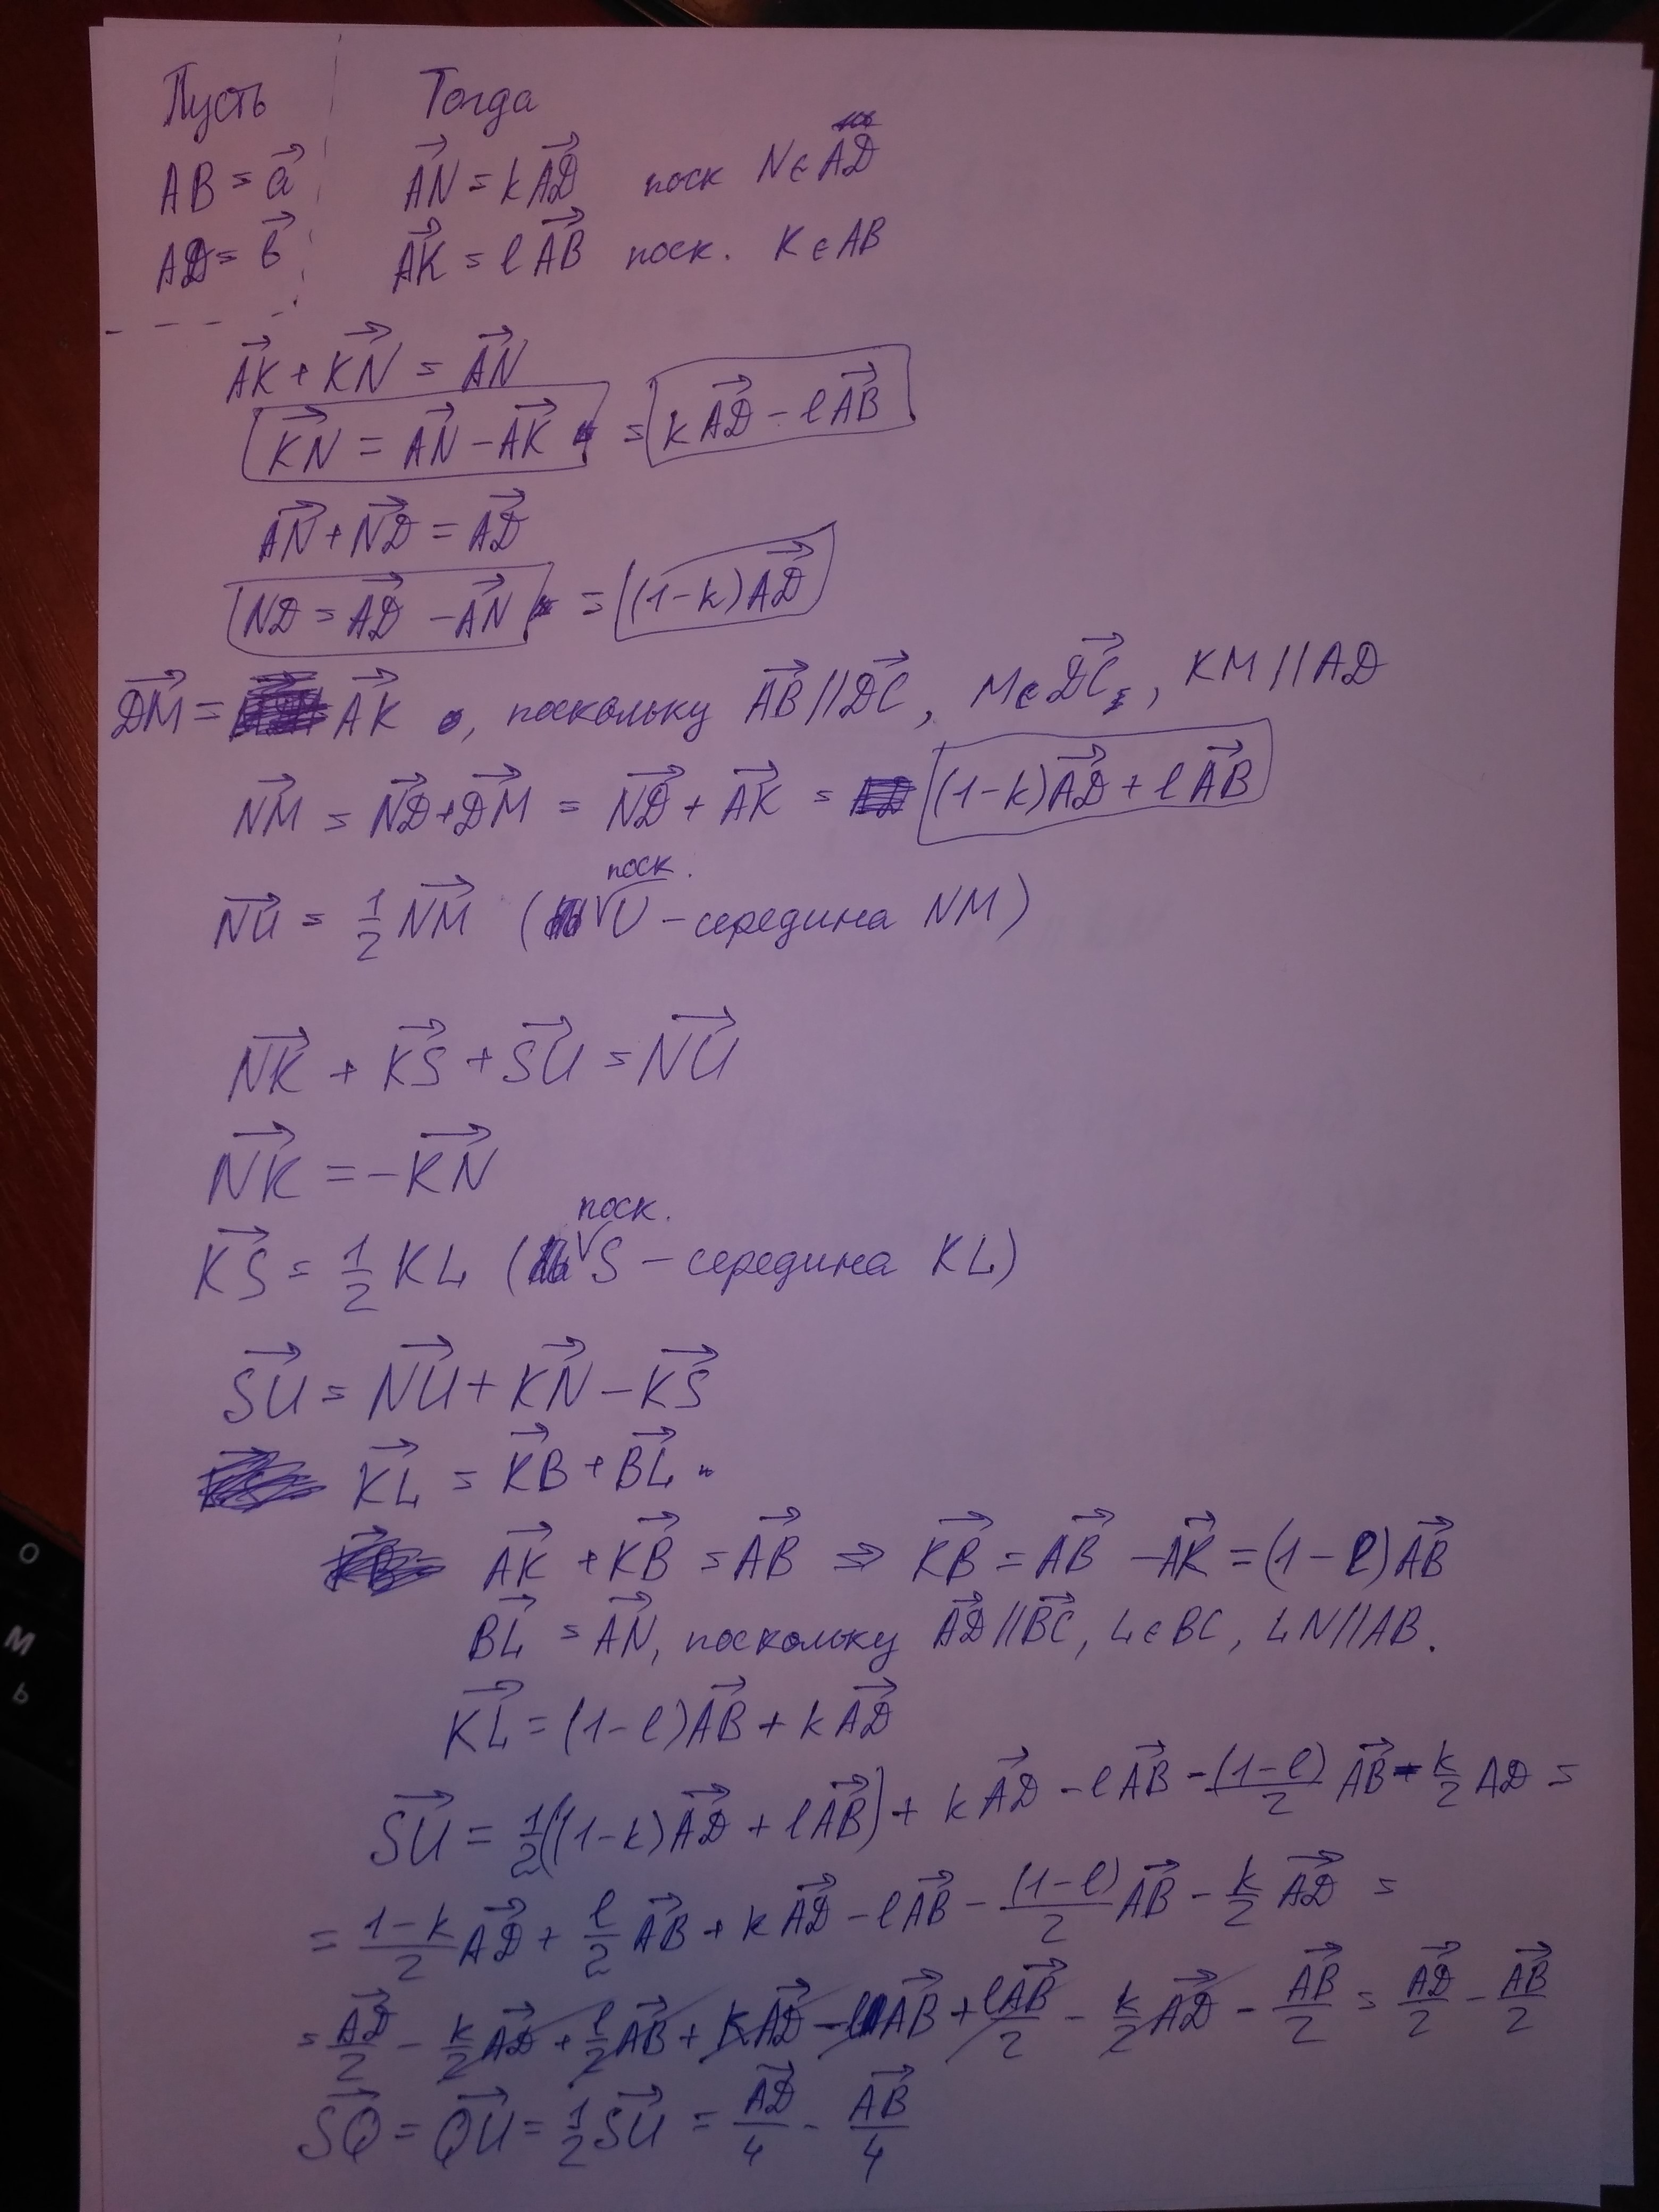 Пусть Тогда
AB = a⃗ AN⃗ = kAD⃗ поск N ∈ AD⃗
AD = b⃗ AK⃗ = lAB⃗ поск. K ∈ AB
AK⃗ + KN⃗ = AN⃗
KN⃗ = AN⃗ − AK⃗ = kAD⃗ − lAB⃗
AN⃗ + ND⃗ = AD⃗
ND = AD⃗ − AN⃗ = (1−k)AD⃗
DM⃗ = AK⃗ , поскольку AB⃗ // DC⃗, M ∈ DC⃗, KM // AD
NM⃗ = ND⃗ + DM⃗ = ND⃗ + AK⃗ = (1−k)AD⃗ + lAB⃗
NU⃗ = 1/2 NM⃗ (поск. U − середина NM)
NK⃗ + KS⃗ + SU⃗ = NU⃗
NK⃗ = −KN⃗
KS⃗ = 1/2 KL (поск. S − середина KL)
SU⃗ = NU⃗ + KN⃗ − KS⃗
KL⃗ = KB⃗ + BL⃗
AK⃗ + KB⃗ = AB⃗ ⇒ KB⃗ = AB⃗ − AK⃗ = (1−l)AB⃗
BL⃗ = AN⃗, поскольку AD⃗ // BC⃗, L ∈ BC, LN // AB.
KL⃗ = (1−l)AB⃗ + kAD⃗
SU⃗ = 1/2((1−k)AD⃗ + lAB⃗) + kAD⃗ − lAB⃗ − (1−l)/2 AB⃗ − k/2 AD =
= (1−k)/2 AD⃗ + l/2 AB⃗ + kAD⃗ − lAB⃗ − (1−l)/2 AB⃗ − k/2 AD⃗ =
= AD⃗/2 − k/2 AD⃗ + l/2 AB⃗ + kAD⃗ − lAB⃗ + lAB⃗/2 − k/2 AD⃗ − AB⃗/2 = AD⃗/2 − AB⃗/2
SQ⃗ = QU⃗ = 1/2 SU⃗ = AD⃗/4 − AB⃗/4